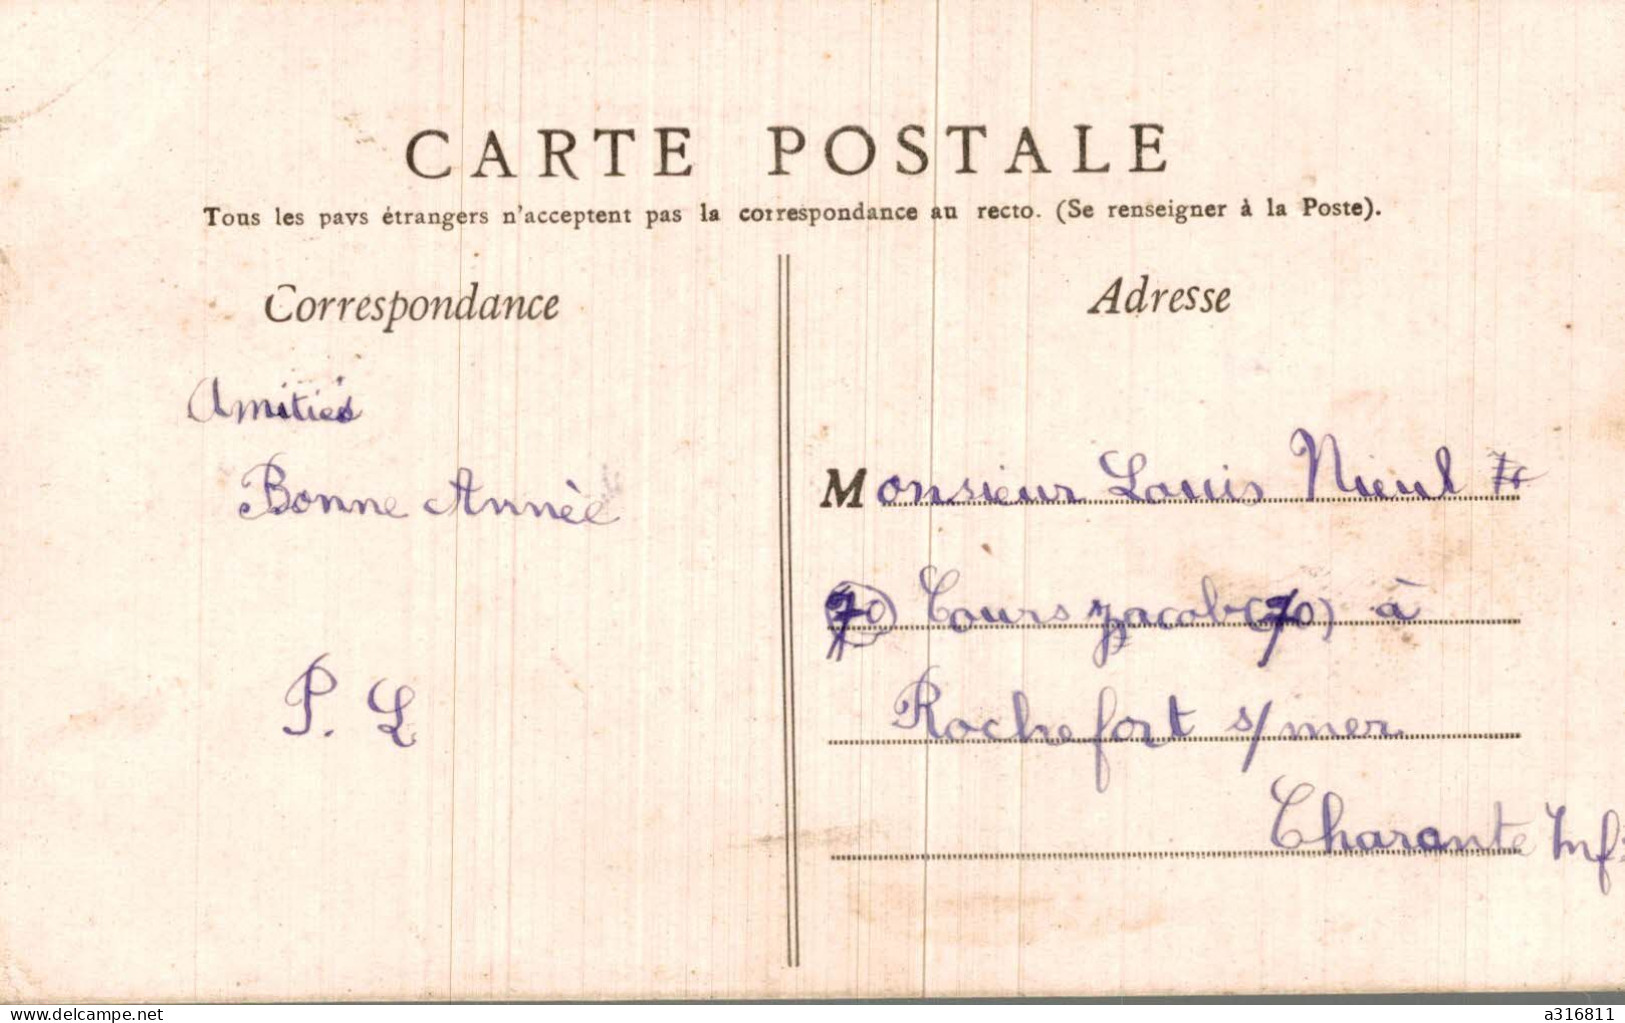 CARTE POSTALE
Tous les pays étrangers n'acceptent pas la correspondance au recto. (Se renseigner à la Poste).
Correspondance
Amitiés
Bonne Année
P. L
Adresse
Monsieur Louis Nieul
70 Cours Jacob (70) à
Rochefort s/mer
Charente Inf:
delcampe.net
a316811